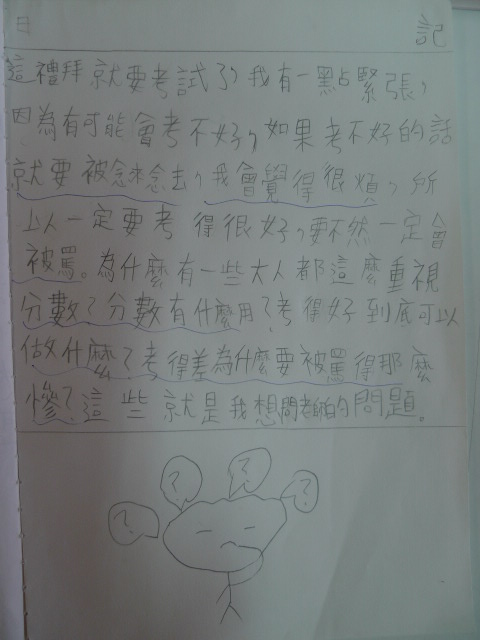 日 記
這禮拜就要考試了,我有一點緊張,
因為有可能會考不好,如果考不好的話
就要被念來念去,我會覺得很煩,所
以一定要考得很好,要不然一定會
被罵。為什麼有一些大人都這麼重視
分數?分數有什麼用?考得好到底可以
做什麼?考得差為什麼要被罵得那麼
慘?這些就是我想問老師的問題。
? ? ? ?